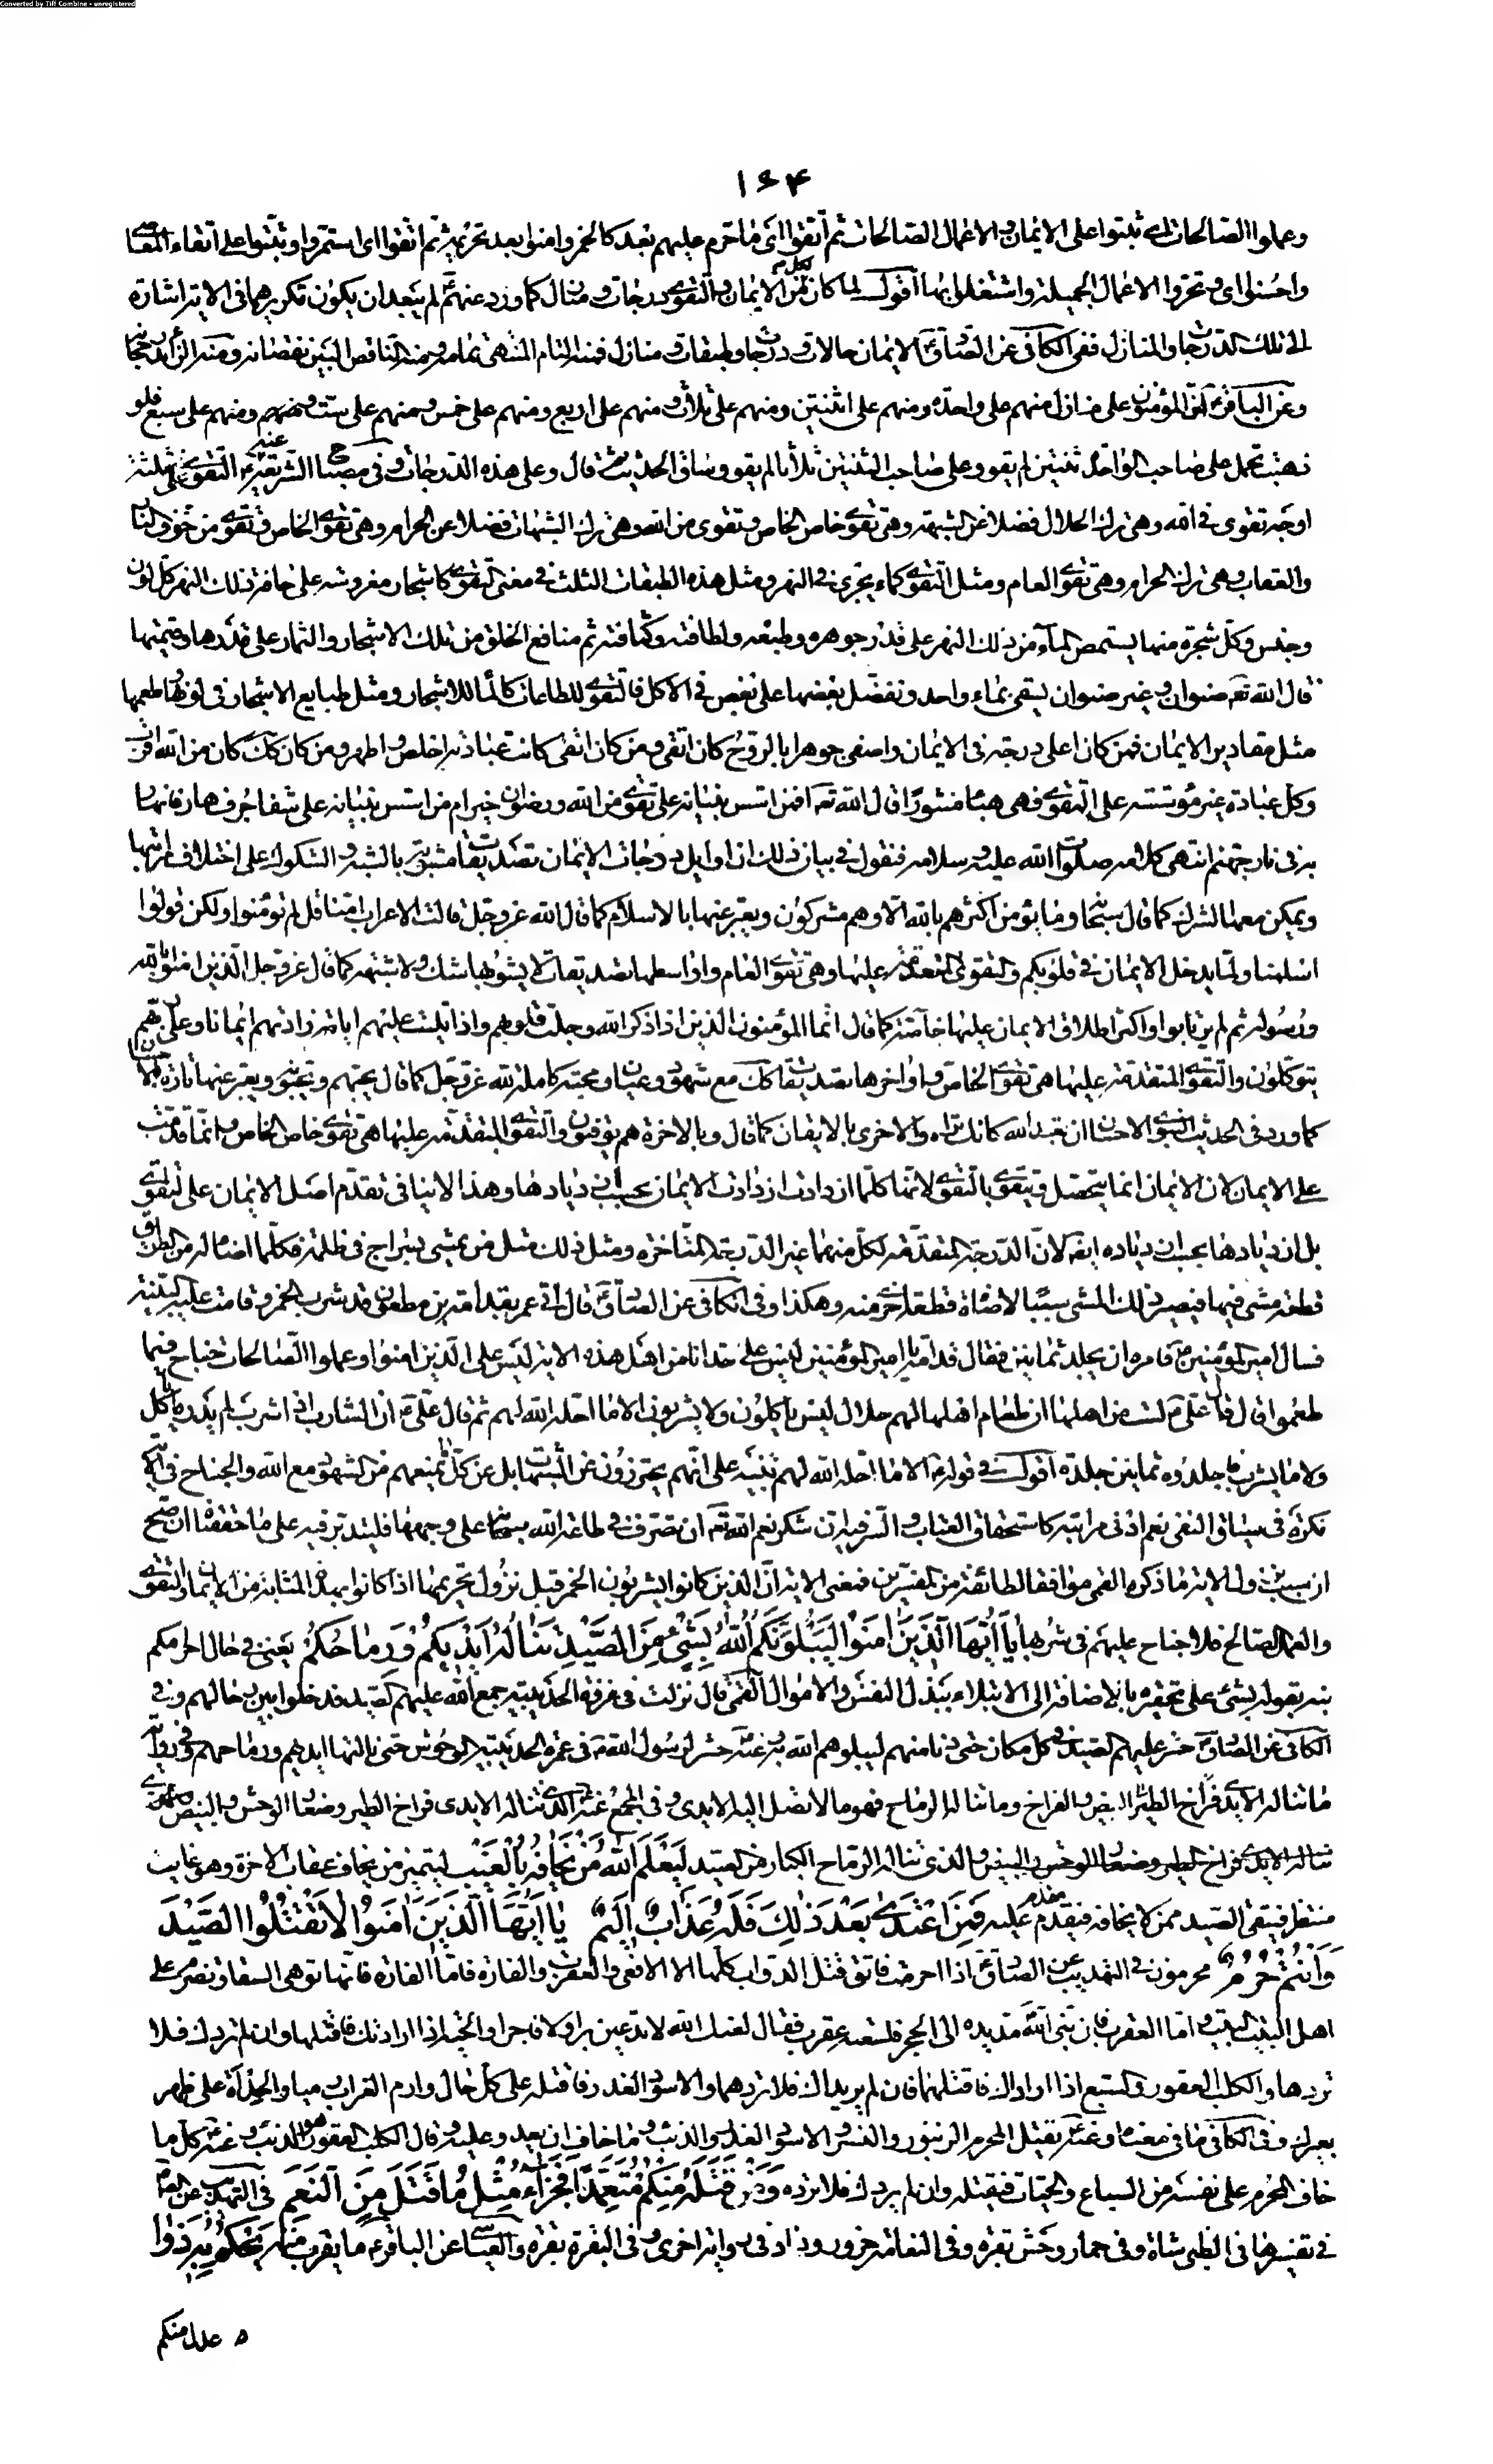 Converted by Tiff Combine - unregistered
۱۶۴
وعملوا الصالحات اى ثبتوا على الايمان والاعمال الصالحات ثم اتقوا اى ما حرم عليهم بعد كالخمر وامنوا بعد تحريمه ثم اتقوا اى استمروا وثبتوا على اتقاء المعاصى
واحسنوا اى وتحروا الاعمال الجميلة واشتغلوا بها اقول لما كان لكل من الايمان والتقوى درجات ومنازل كما ورد عنهم لم يبعد ان يكون تكريرهما فى الاية اشارة
الى تلك الدرجات والمنازل ففى الكافى عن الصادق الايمان حالات ودرجات وطبقات ومنازل فمنه التام المنتهى تمامه ومنه الناقص البين نقصانه ومنه الزائد رجحانه
وعن الباقر ان المؤمنين على منازل منهم على واحدة ومنهم على اثنتين ومنهم على ثلاث ومنهم على اربع ومنهم على خمس ومنهم على ست ومنهم على سبع فلو
ذهبت تحمل على صاحب الواحدة ثنتين لم يقو وعلى صاحب الثنتين ثلاثا لم يقو وساق الحديث ثم قال وعلى هذه الدرجات وفى مصباح الشريعة عنه التقوى على ثلثة
اوجه تقوى فى الله وهى ترك الحلال فضلا عن الشبهة وهى تقوى خاص الخاص وتقوى من الله وهى ترك الشبهات فضلا عن الحرام وهى تقوى الخاص وتقوى من خوف النار
والعقاب وهى ترك الحرام وهى تقوى العام ومثل التقوى كماء يجرى فى النهر ومثل هذه الطبقات الثلث فى معنى التقوى كاشجار مغروسة على حافة ذلك النهر كل لون
وجنس وكل شجرة منها يستمص الماء من ذلك النهر على قدر جوهره وطبعه ولطافته وكثافته ثم منافع الخلق من تلك الاشجار والثمار على قدرها وقيمتها
قال الله تع صنوان وغير صنوان يسقى بماء واحد ونفضل بعضها على بعض فى الاكل فالتقوى للطاعات كالماء للاشجار ومثل طبايع الاشجار فى لونها وطعمها
مثل مقادير الايمان فمن كان اعلى درجة فى الايمان واصفى جوهرا بالروح كان اتقى ومن كان اتقى كانت عبادته اخلص واطهر ومن كان كك كان من الله اقرب
وكل عبادة غير مؤسسة على التقوى فهى هباء منثورا قال الله تع افمن اسس بنيانه على تقوى من الله ورضوان خير ام من اسس بنيانه على شفا جرف هار فانهار
به فى نار جهنم انتهى كلامه صلوات الله عليه وسلامه فنقول فى بيان ذلك ان اوايل درجات الايمان تصديقات مشوبة بالشبه والشكوك على اختلاف مراتبها
ويمكن معها الشرك كما قال سبحانه وما يؤمن اكثرهم بالله الا وهم مشركون ويعبر عنها بالاسلام كما قال الله عز وجل قالت الاعراب امنا قل لم تؤمنوا ولكن قولوا
اسلمنا ولما يدخل الايمان فى قلوبكم والتقوى المتقدمة عليها وهى تقوى العام واواسطها تصديقات لا يشوبها شك ولا شبهة كما قال عز وجل الذين امنوا بالله
ورسوله ثم لم يرتابوا واكثر اطلاق الايمان عليها خاصة كما قال انما المؤمنون الذين اذا ذكر الله وجلت قلوبهم واذا تليت عليهم اياته زادتهم ايمانا وعلى ربهم
يتوكلون والتقوى المتقدمة عليها هى تقوى الخاص واواخرها تصديقات كك مع شهود وعيان ومحبة كاملة لله عز وجل كما قال يحبهم ويحبونه ويعبر عنها تارة بالاحسان
كما ورد فى الحديث النبوى الاحسان ان تعبد الله كانك تراه والاخرى بالايقان كما قال وبالاخرة هم يوقنون والتقوى المتقدمة عليها هى تقوى خاص الخاص وانما قدمت
على الايمان لان الايمان انما يتحصل ويتقوى بالتقوى لانها كلما ازدادت ازداد الايمان بحسب ازديادها وهذا لا ينافى تقدم اصل الايمان على التقوى
بل ازديادها بحسب ازدياده ايضا لان الدرجة المتقدمة لكل منهما غير الدرجة المتاخرة ومثل ذلك مثل من يمشى بسراج فى ظلمة فكلما اضاء له من الطريق
قطعة مشى فيها فيصير ذلك المشى سببا لاضاءة قطعة اخرى منه وهكذا وفى الكافى عن الصادق قال اتى عمر بقدامة بن مظعون قد شرب الخمر وقامت عليه البينة
فسال امير المؤمنين فامره ان يجلد ثمانين فقال قدامة يا امير المؤمنين ليس على حد انا من اهل هذه الاية ليس على الذين امنوا وعملوا الصالحات جناح فيما
طعموا قال فقال على لست من اهلها ان طعام اهلها لهم حلال ليس ياكلون ولا يشربون الا ما احله الله لهم ثم قال على ان الشارب اذا شرب لم يدر ما ياكل
ولا ما يشرب فاجلدوه ثمانين جلدة اقول فى قوله الا ما احله الله لهم تنبيه على انهم يحترزون عن الشبهات بل عن كل ما يمنعهم من الشهود مع الله والجناح فى الاية
نكرة فى سياق النفى يعم ادنى مراتبه كاستحقاق العتاب والسر فيه ان شكر نعم الله تع ان تصرف فى طاعة الله سبحانه على وجهها فليتدبر فيه على ما حققناه ان صح
ان سبب نزول الاية ما ذكره القمى موافقا لطائفة من المفسرين فمعنى الاية ان الذين كانوا يشربون الخمر قبل نزول تحريمها اذا كانوا بهذه المثابة من الايمان والتقوى
والعمل الصالح فلا جناح عليهم فى شربها يا ايها الذين امنوا ليبلونكم الله بشىء من الصيد تناله ايديكم ورماحكم يعنى فى حال احرامكم
نبه بقوله بشىء على تحقيره بالاضافة الى الابتلاء ببذل النفس والاموال القمى قال نزلت فى غزوة الحديبية جمع الله عليهم الصيد فدخلوا بين رحالهم وفى
الكافى عن الصادق حشر عليهم الصيد فى كل مكان حتى دنا منهم ليبلوهم الله به وعنه حشر لرسول الله فى عمرة الحديبية الوحوش حتى نالتها ايديهم ورماحهم وفى رواية
ما تناله الايدى فراخ الطير البيض والفراخ وما تناله الرماح فهو ما لا تصل اليه الايدى وفى المجمع عنه الذى تناله الايدى فراخ الطير وصغار الوحش والبيض
تناله الايدى فراخ الطير وصغار الوحش والبيض والذى تناله الرماح الكبار من الصيد ليعلم الله من يخافه بالغيب ليتميز من يخاف عقاب الاخرة وهو غايب
منتظر فيتقى الصيد ممن لا يخافه فيقدم عليه فمن اعتدى بعد ذلك فله عذاب اليم يا ايها الذين امنوا لا تقتلوا الصيد
وانتم حرم محرمون فى التهذيب عن الصادق اذا احرمت فاتق قتل الدواب كلها الا الافعى والعقرب والفارة فاما الفارة فانها توهى السقاء وتضرم على
اهل البيت البيت واما العقرب فان نبى الله مد يده الى الحجر فلسعته عقرب فقال لعنك الله لا تدعين برا ولا فاجرا والحية اذا ارادتك فاقتلها وان لم تردك فلا
تردها والكلب العقور والسبع اذا ارادك فاقتلهما فان لم يريداك فلا تردهما والاسود الغدر فاقتله على كل حال وارم الغراب رميا والحداة على ظهر
بعيرك وفى الكافى ما فى معناه وعنه يقتل المحرم الزنبور والنسر والاسود الغدر والذئب وما خاف ان يعدو عليه وقال الكلب العقور هو الذئب وعنه كل ما
خاف المحرم على نفسه من السباع والحيات فيقتله وان لم يردك فلا ترده ومن قتله منكم متعمدا فجزاء مثل ما قتل من النعم فى التهذيب عن الصادق
فى تفسيرها فى الظبى شاة وفى حمار وحش بقرة وفى النعامة جزور وزاد فى رواية اخرى وفى البقرة بقرة والعياشى عن الباقر ما يقرب منه يحكم به ذوا
عدل منكم